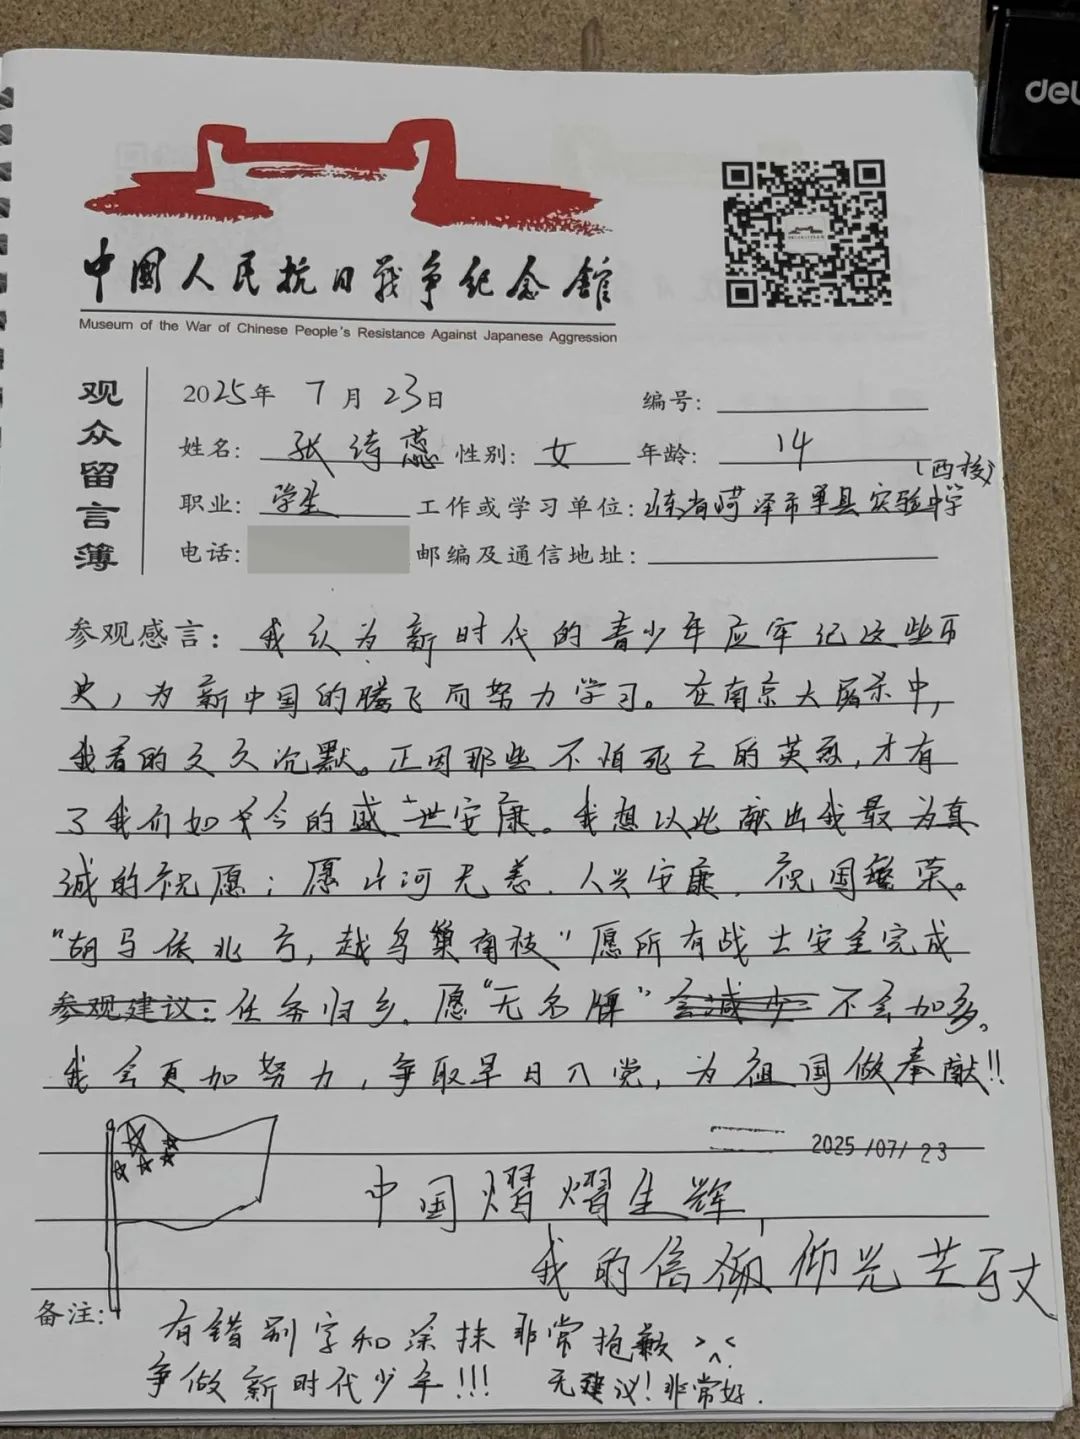 del
中國人民抗日戰争纪念館
Museum of the War of Chinese People's Resistance Against Japanese Aggression
观众留言簿
2025年 7月 23日 编号:
姓名: 张 蕊 性别: 女 年龄: 14
(西校)
职业: 学生 工作或学习单位: 山东省菏泽市单县实验中学
电话: 邮编及通信地址:
参观感言: 我认为新时代的青少年应牢记这些历
史,为新中国的腾飞而努力学习。在南京大屠杀中,
我看的文久沉默。正因那些不怕死亡的英烈,才有
了我们如今的盛世安康。我想以此献出我最为真
诚的祝愿:愿山河无恙,人兴安康,祝国繁荣。
"胡马依北方,越鸟巢南枝"愿所有战士安全完成
参观建议: 任务归乡,愿"无名牌"会减少不会加多。
我会更加努力,争取早日入党,为祖国做奉献!!
2025/07/23
中国熠熠生辉
我的信仰光芒万丈
备注: 有错别字和涂抹非常抱歉 >^<
争做新时代少年!!! 无建议!非常好.